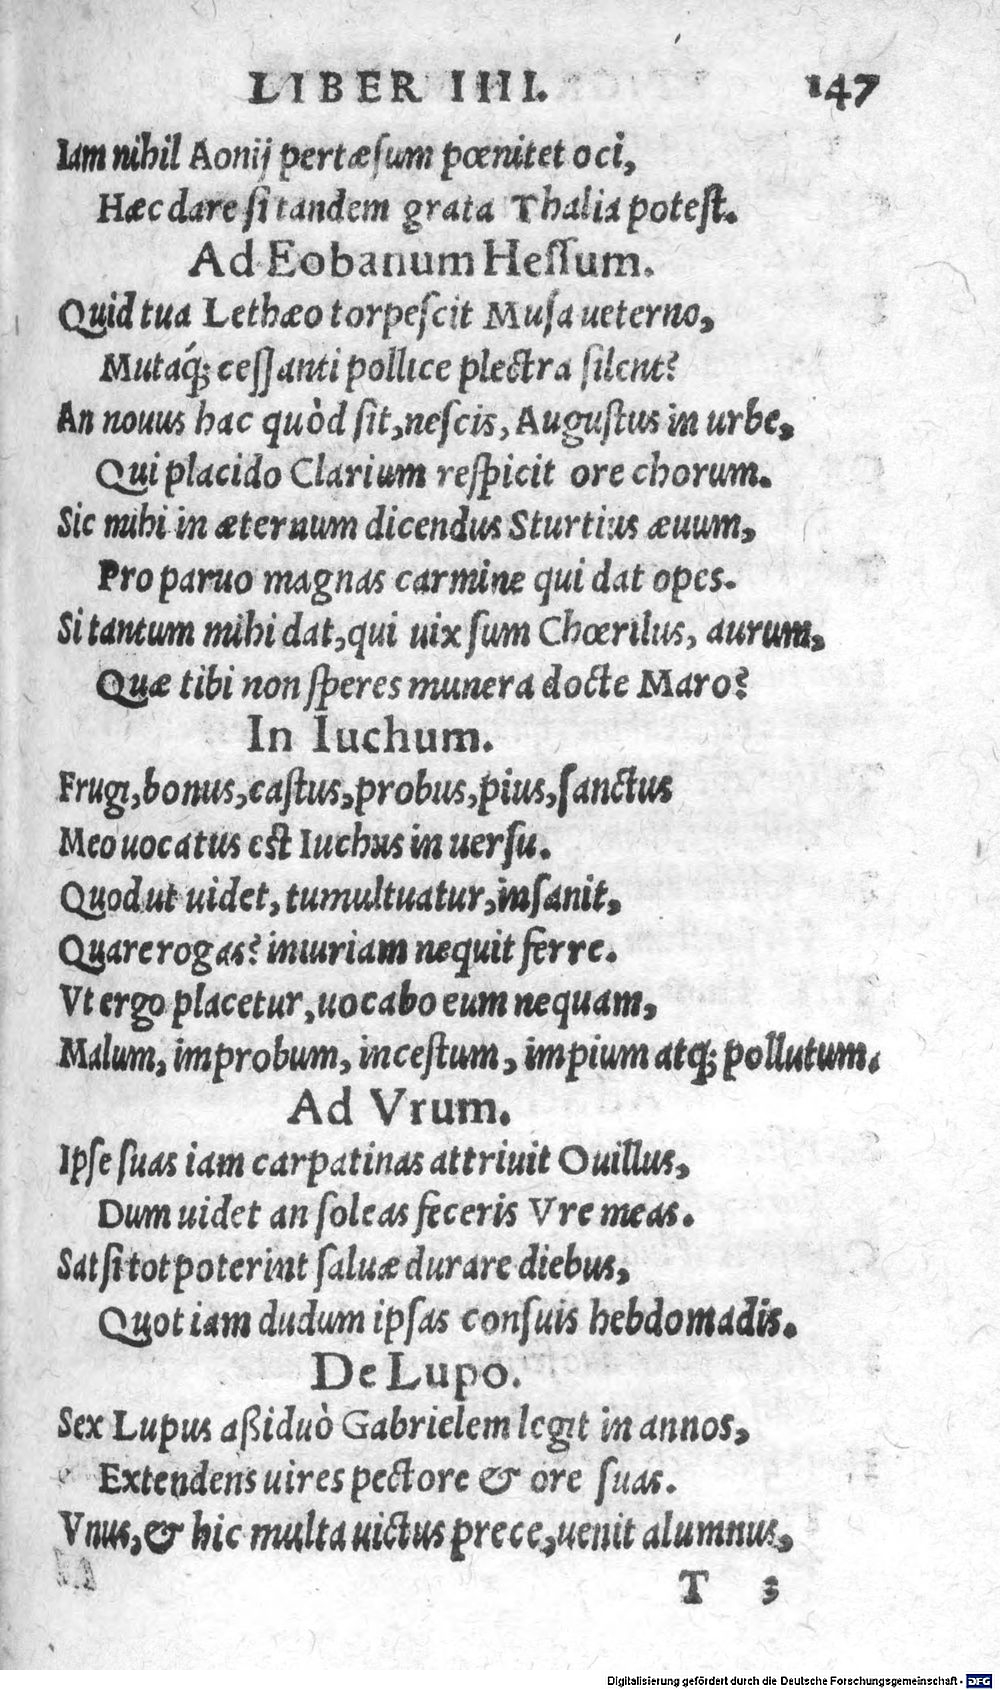 LIBER IIII. 147
Iam nihil Aonij pertæſum pœnitet oci,
Hæc dare ſi tandem grata Thalia poteſt.
Ad Eobanum Heſſum.
Quid tua Lethæo torpeſcit Muſa ueterno,
Mutáq; ceſſanti pollice plectra ſilent?
An nouus hac quòd ſit, neſcis, Auguſtus in urbe,
Qui placido Clarium reſpicit ore chorum.
Sic mihi in æternum dicendus Sturtius æuum,
Pro paruo magnas carmine qui dat opes.
Si tantum mihi dat, qui uix ſum Chœrilus, aurum,
Quæ tibi non ſperes munera docte Maro?
In Iuchum.
Frugi, bonus, caſtus, probus, pius, ſanctus
Meo uocatus eſt Iuchus in uerſu.
Quod ut uidet, tumultuatur, inſanit,
Quare rogas? iniuriam nequit ferre.
Vt ergo placetur, uocabo eum nequam,
Malum, improbum, inceſtum, impium atq; pollutum.
Ad Vrum.
Ipſe ſuas iam carpatinas attriuit Ouillus,
Dum uidet an ſoleas feceris Vre meas.
Sat ſi tot poterint ſaluæ durare diebus,
Quot iam dudum ipſas conſuis hebdomadis.
De Lupo.
Sex Lupus aßiduò Gabrielem legit in annos,
Extendens uires pectore & ore ſuas.
Vnus, & hic multa uictus prece, uenit alumnus,
T 3
Digitalisierung gefördert durch die Deutsche Forschungsgemeinschaft - DFG